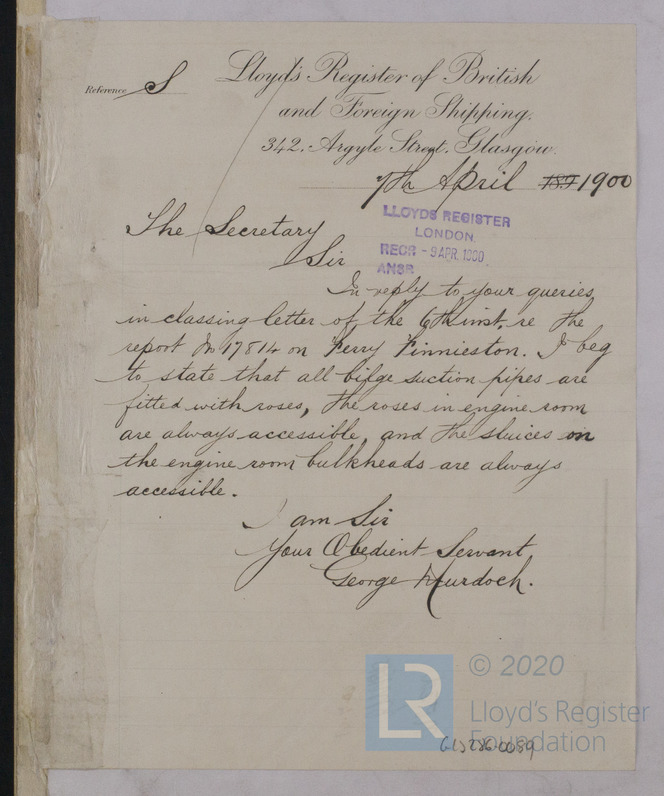 Reference S
Lloyd's Register of British
and Foreign Shipping.
342, Argyle Street, Glasgow.
7th April 189 1900
LLOYDS REGISTER
LONDON
RECR - 9 APR. 1900
ANSR
The Secretary
Sir
In reply to your queries
in classing letter of the 6th inst. re the
report No 17814 on Ferry Finnieston. I beg
to state that all bilge suction pipes are
fitted with roses, the roses in engine room
are always accessible, and the sluices on
the engine room bulkheads are always
accessible.
I am Sir
Your Obedient Servant
George Murdoch.
LR
© 2020
Lloyd's Register
Foundation